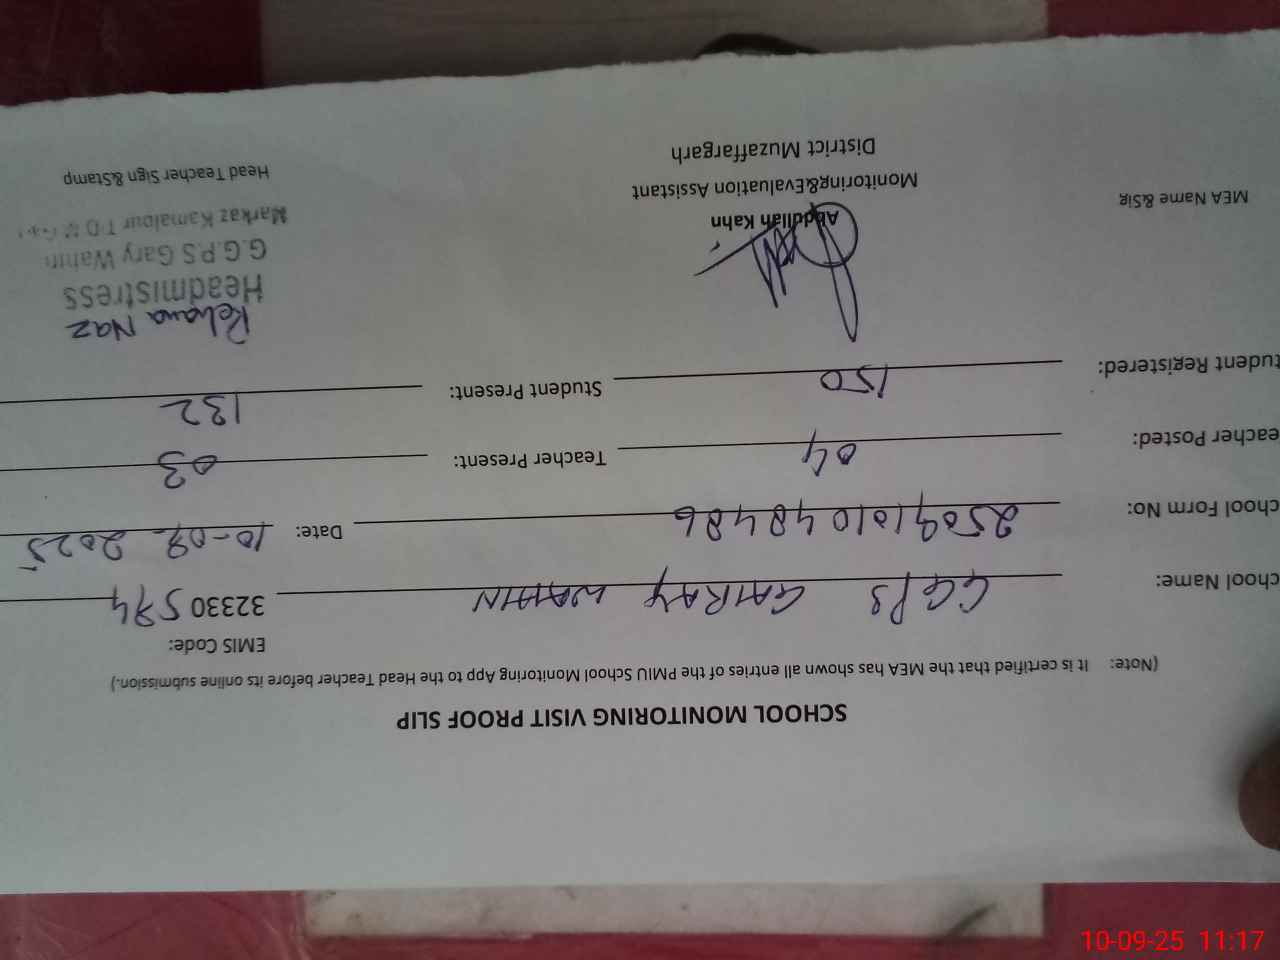 SCHOOL MONITORING VISIT PROOF SLIP
(Note: It is certified that the MEA has shown all entries of the PMIU School Monitoring App to the Head Teacher before its online submission.)
EMIS Code:
chool Name: GGPS GAHRAY WAHIN 32330 574
chool Form No: 2509101048486 Date: 10-09-2025
eacher Posted: 04 Teacher Present: 03
tudent Registered: 150 Student Present: 132
Rehana Naz
Headmistress
Abdullah Kahn G.G.P.S Gary Wahin
MEA Name &Sig Monitoring&Evaluation Assistant Markaz Kamalpur
District Muzaffargarh Head Teacher Sign &Stamp
10-09-25 11:17